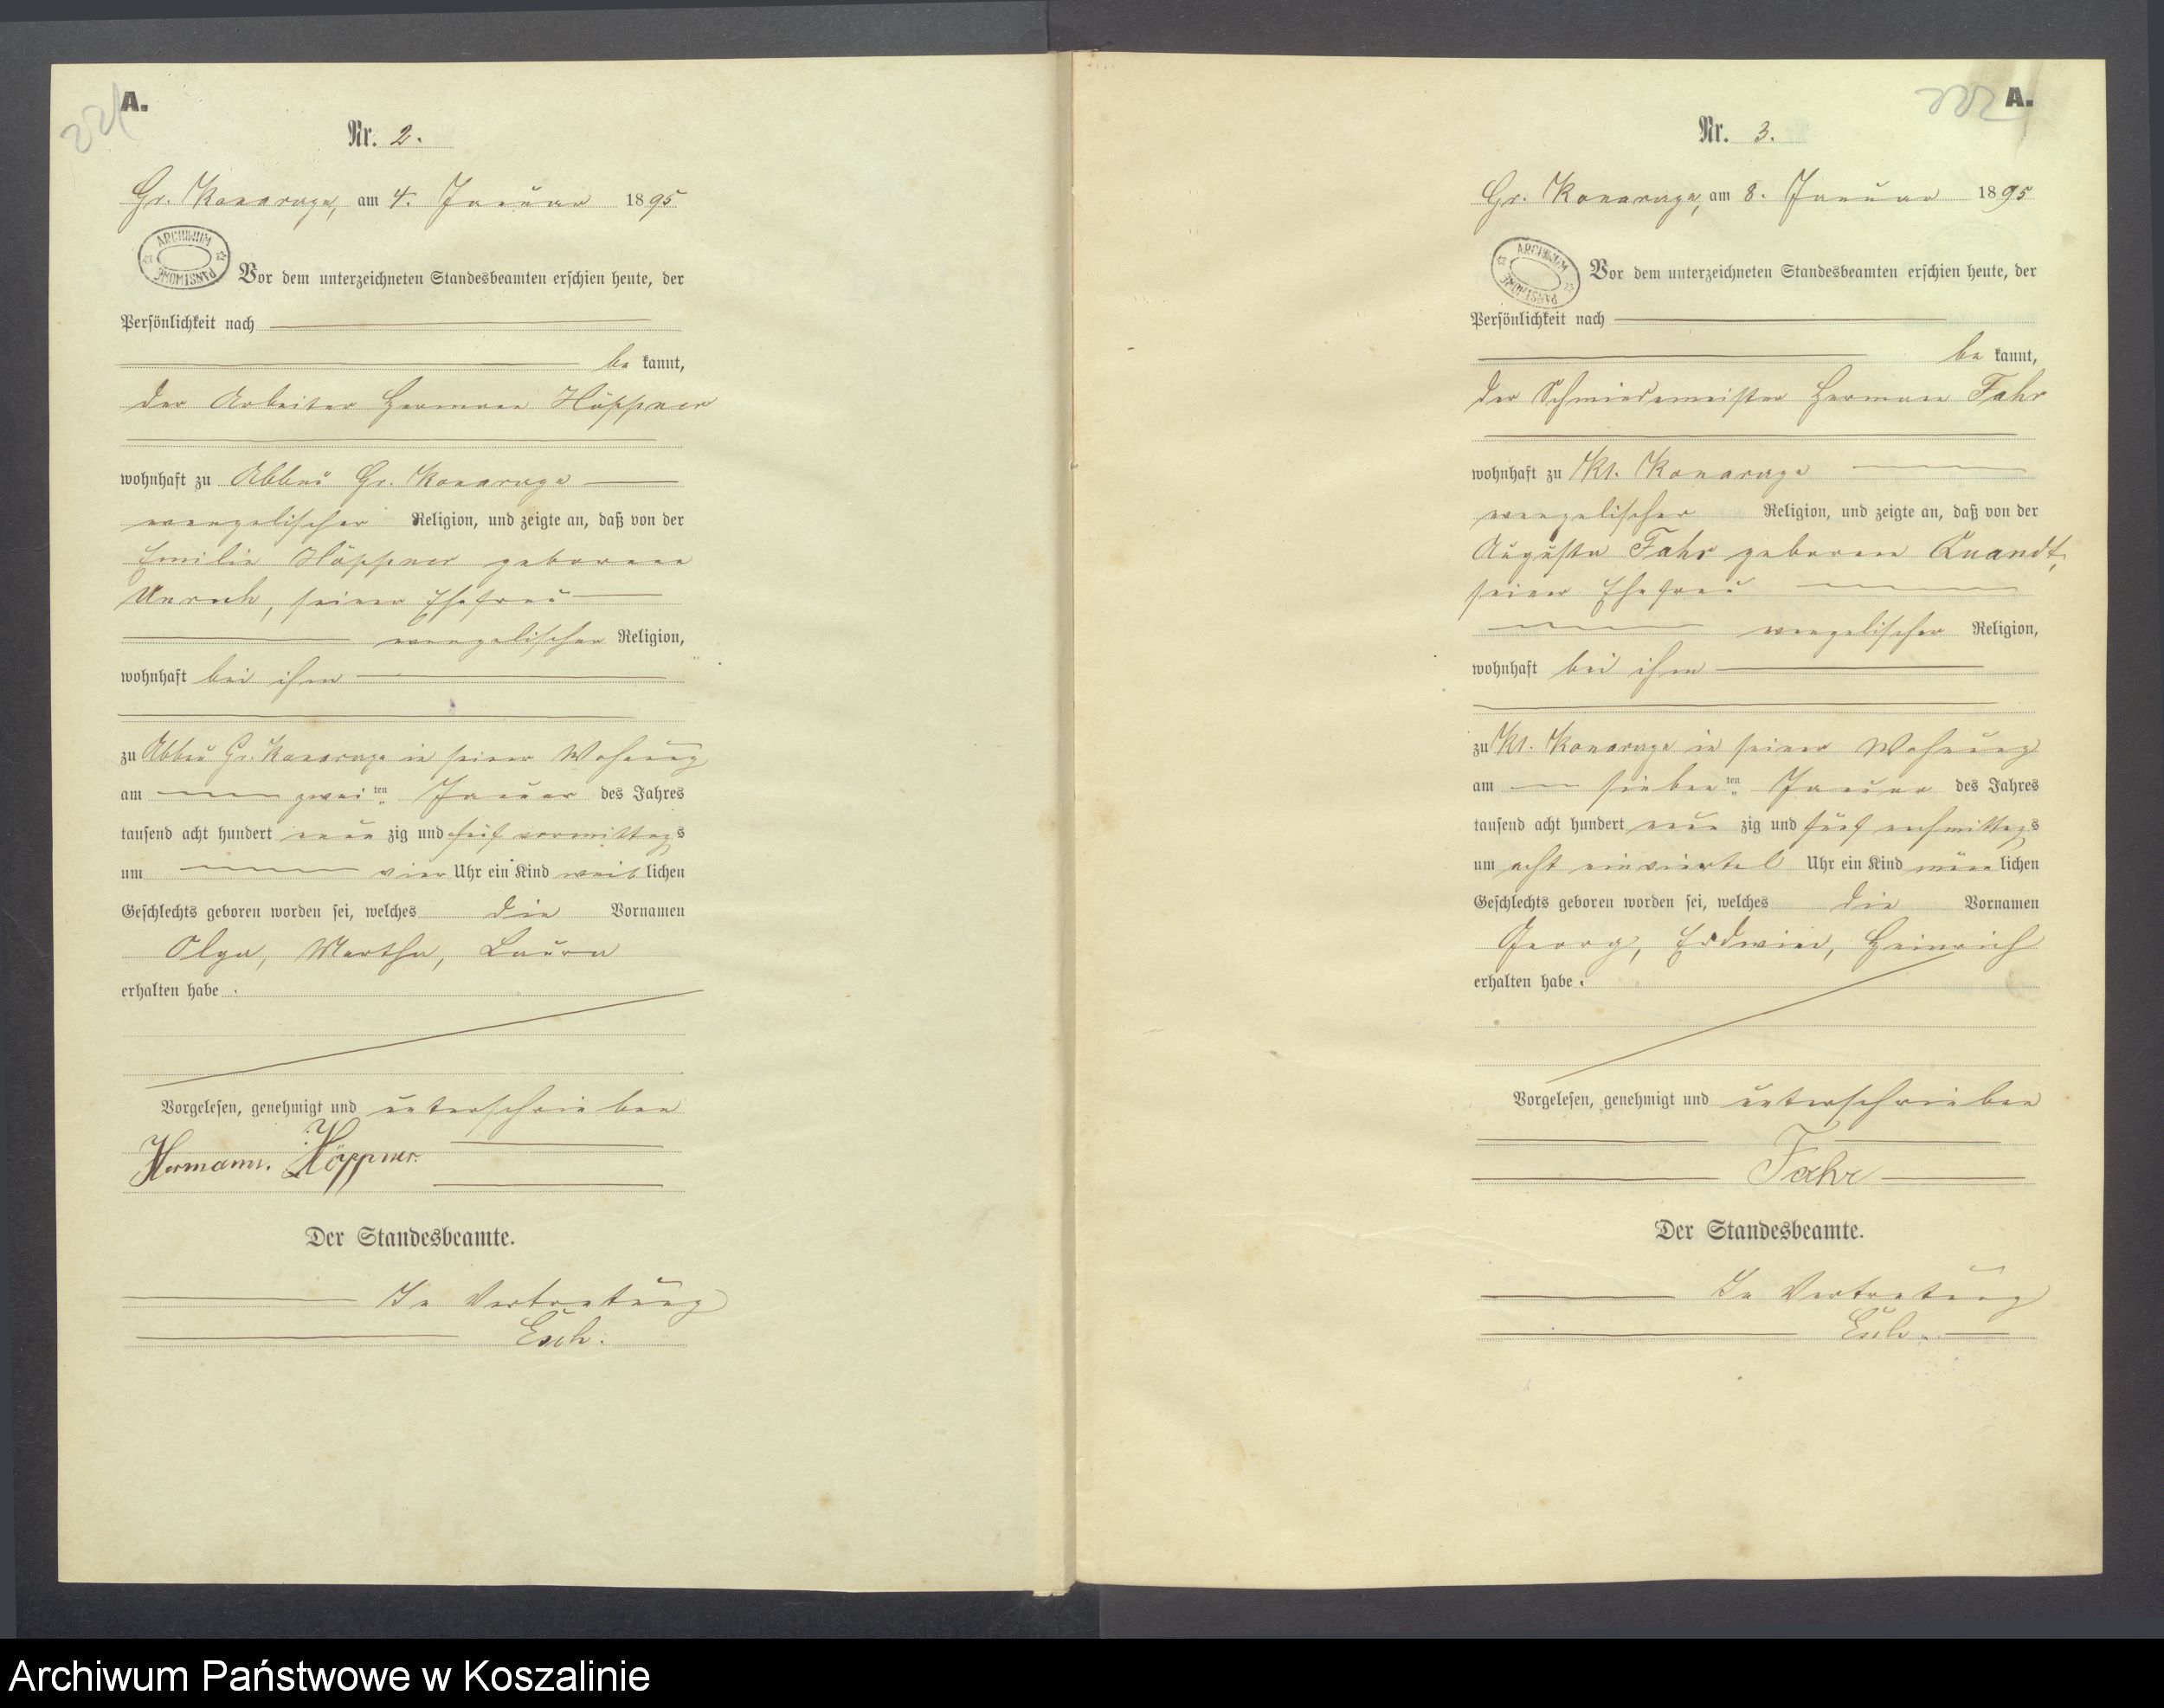 A.
221
Nr. 2.
Gr. Konarage, am 4. Januar 1895
ARCHIWUM PAŃSTWOWE
Vor dem unterzeichneten Standesbeamten erschien heute, der
Persönlichkeit nach
be kannt,
der Arbeiter Hermann Höppner
wohnhaft zu Abbau Gr. Konarage
evangelischer Religion, und zeigte an, daß von der
Emilie Höppner geborene
Unruh, seiner Ehefrau
evangelischer Religion,
wohnhaft bei ihm
zu Abbau Gr. Konarage in seiner Wohnung
am zwei ten Januar des Jahres
tausend acht hundert neun zig und fünf vormittags
um vier Uhr ein Kind weib lichen
Geschlechts geboren worden sei, welches die Vornamen
Olga, Martha, Laura
erhalten habe .
Vorgelesen, genehmigt und unterschrieben
Hermann. Höppner.
Der Standesbeamte.
In Vertretung
A.
222
Nr. 3.
Gr. Konarage, am 8. Januar 1895
ARCHIWUM PAŃSTWOWE
Vor dem unterzeichneten Standesbeamten erschien heute, der
Persönlichkeit nach
be kannt,
der Schmiedemeister Hermann Fahr
wohnhaft zu Kl. Konarage
evangelischer Religion, und zeigte an, daß von der
Auguste Fahr geborene Quandt,
seiner Ehefrau
evangelischer Religion,
wohnhaft bei ihm
zu Kl. Konarage in seiner Wohnung
am sieben ten Januar des Jahres
tausend acht hundert neun zig und fünf nachmittags
um acht einviertel Uhr ein Kind männ lichen
Geschlechts geboren worden sei, welches die Vornamen
Georg, Erdwien, Heinrich
erhalten habe .
Vorgelesen, genehmigt und unterschrieben
Fahr
Der Standesbeamte.
In Vertretung
Archiwum Państwowe w Koszalinie